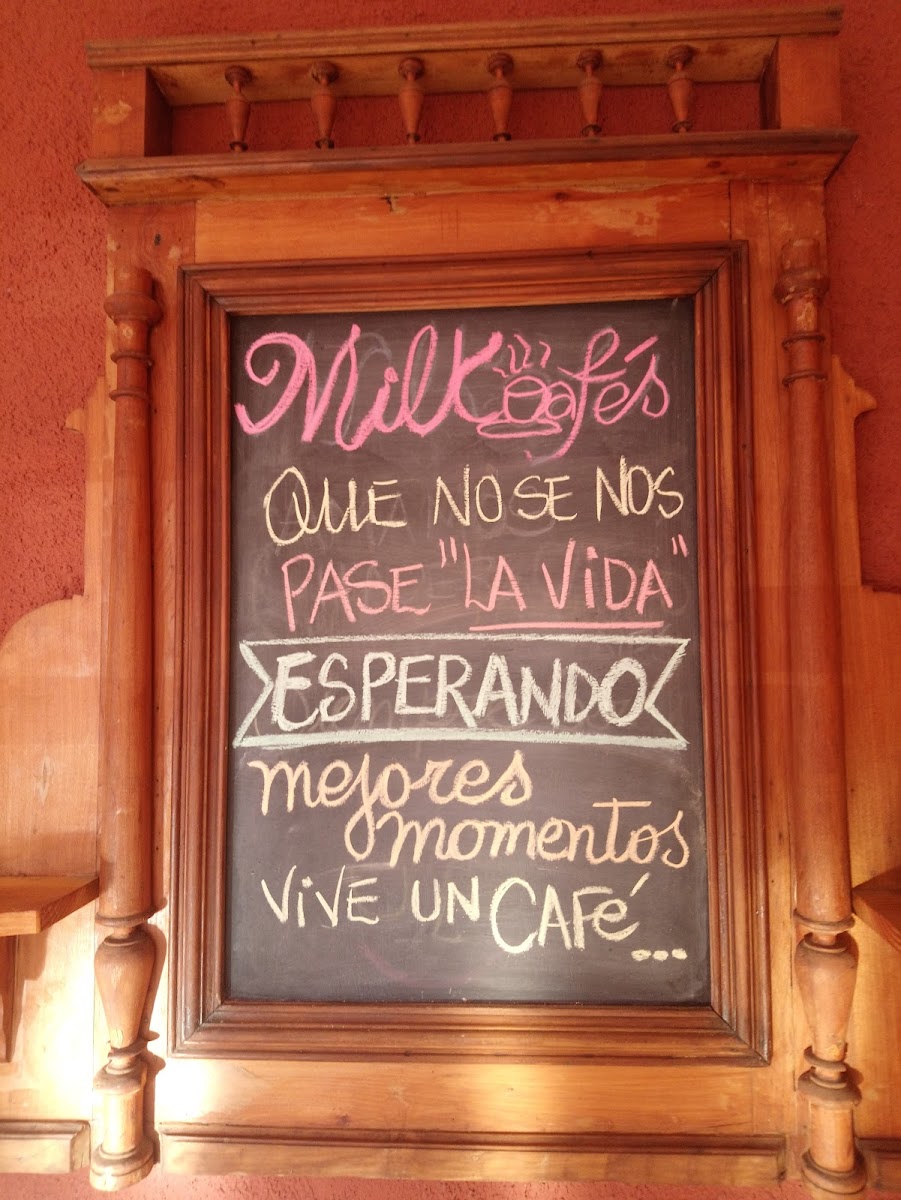 Milk cafés
QUE NO SE NOS
PASE "LA ViDA"
ESPERANDO
mejores
momentos
ViVE UN CAFé...